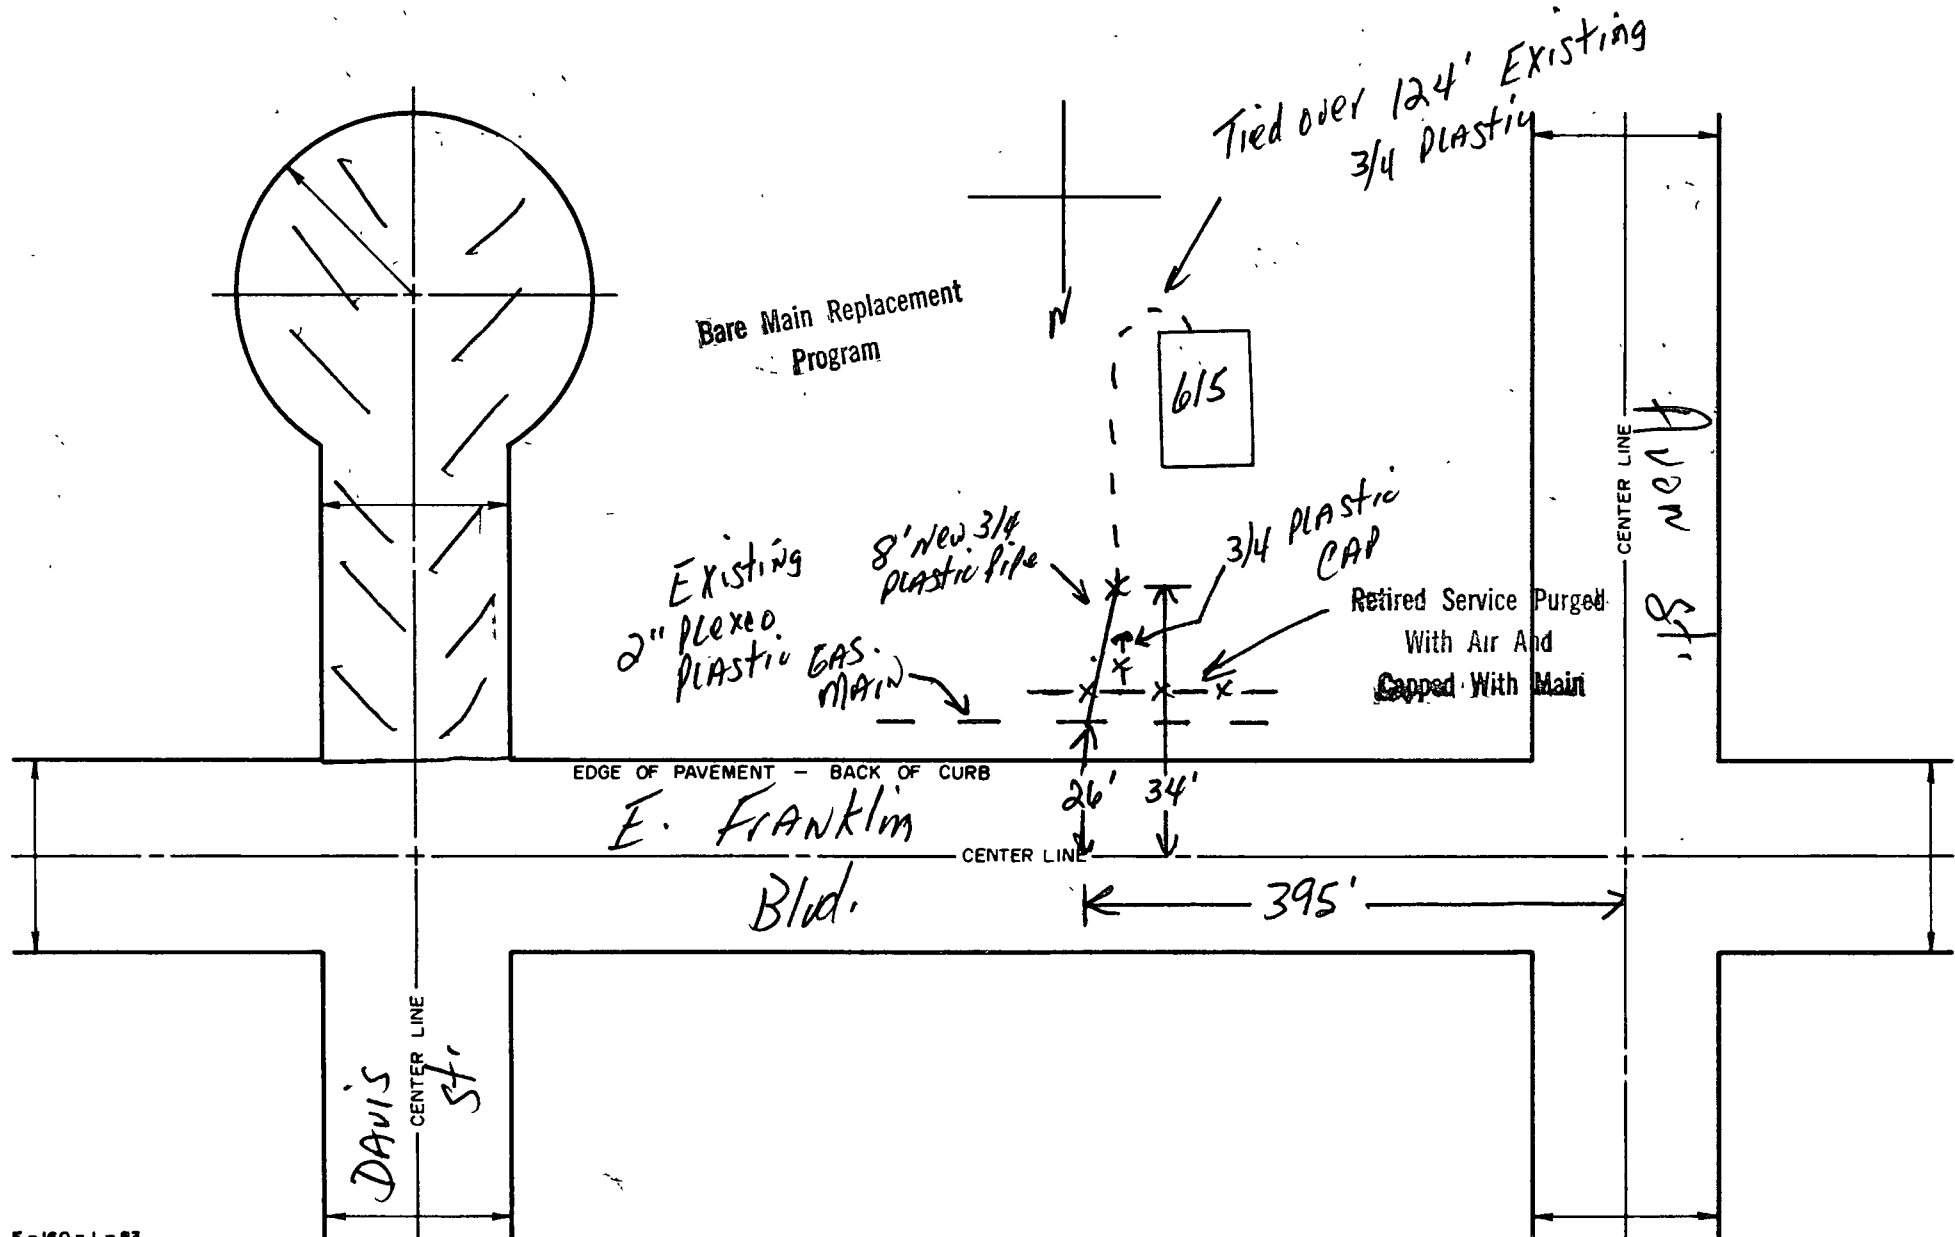 Tied over 124' Existing
3/4 Plastic
N
Bare Main Replacement
Program
615
CENTER LINE
Avon St.
Existing
2" Plexco
Plastic
GAS
MAIN
8' New 3/4
Plastic Pipe
3/4 Plastic
CAP
Retired Service Purged
With Air And
Capped With Main
EDGE OF PAVEMENT - BACK OF CURB
E. Franklin
Blvd.
26'
34'
CENTER LINE
395'
DAVIS
St.
CENTER LINE